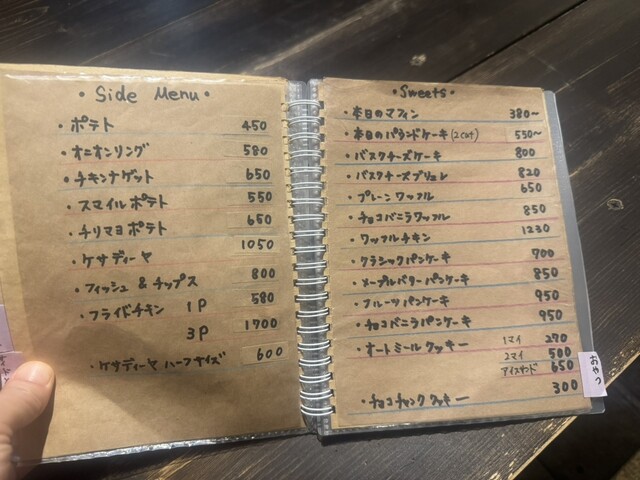 ・Side Menu・
・ポテト 450
・オニオンリング 580
・チキンナゲット 650
・スマイルポテト 550
・チリマヨポテト 650
・ケサディーヤ 1050
・フィッシュ & チップス 800
・フライドチキン 1P 580
3P 1700
・ケサディーヤ ハーフサイズ 600
・Sweets・
・本日のマフィン 380~
・本日のパウンドケーキ(2cut) 550~
・バスクチーズケーキ 800
・バスクチーズブリュレ 820
・プレーンワッフル 650
・チョコバニラワッフル 850
・ワッフルチキン 1230
・クラシックパンケーキ 700
・メープルバターパンケーキ 850
・フルーツパンケーキ 950
・チョコバニラパンケーキ 950
・オートミールクッキー 1マイ 270
2マイ 500
アイスサンド 650
・チョコチャンククッキー 300
おやつ